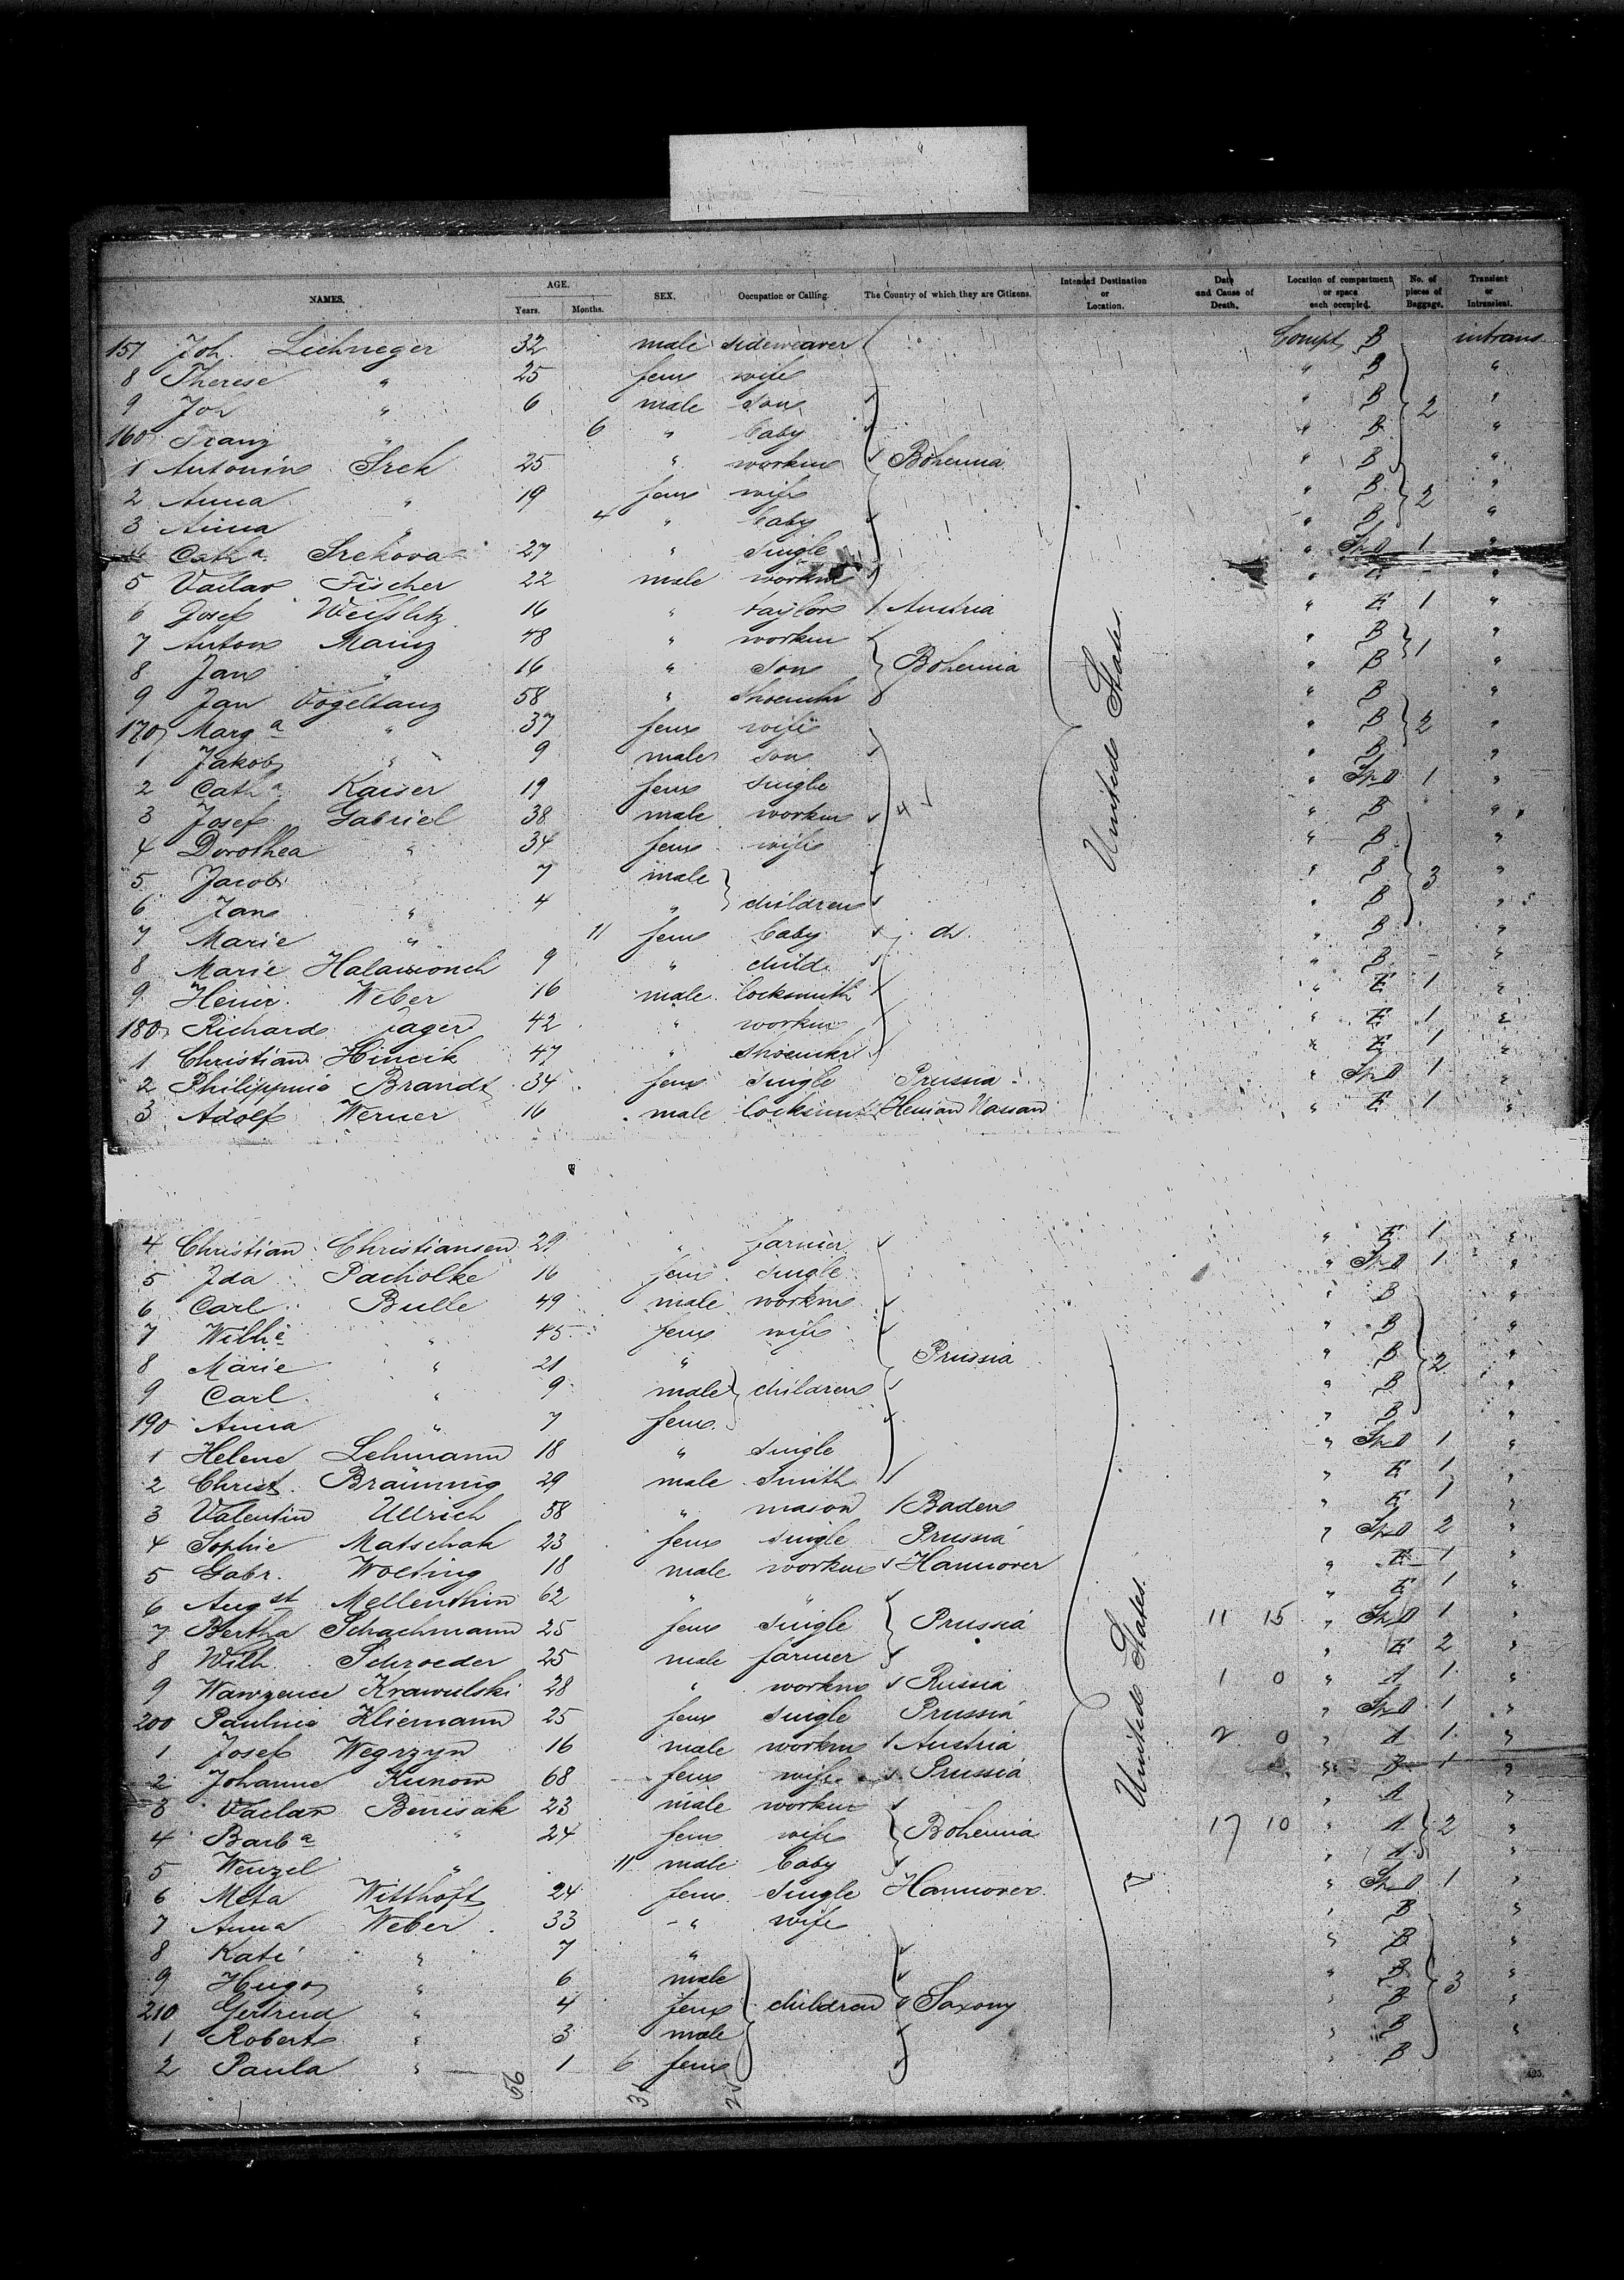 NAMES. AGE. Years. Months. SEX. Occupation or Calling. The Country of which they are Citizens. Intended Destination or Location. Date and Cause of Death. Location of compartment or space each occupied. No. of pieces of Baggage. Transient or Intransient.
157 Joh. 32 male Compt B intrans
8 Therese " 25 fem wife " B "
9 Joh " 6 male son " B 2 "
160 Franz " 6 " baby " B "
1 Antonin Srch 25 " workm Bohemia " B "
2 Anna " 19 fem wife " B 2 "
3 Anna " 4 " baby " B "
4 Cath a Srchova 27 " single " Sp D 1 "
5 Vaclav Fischer 22 male workm " E - "
6 Josef 16 " taylor Austria " E 1 "
7 Anton 48 " workm " B 1 "
8 Jan " 16 " son Bohemia " B "
9 Jan Vogeltanz 58 " shoemkr " B "
170 Marg a " 37 fem wife " B 2 "
1 Jakob " 9 male son " B "
2 Cath a Kaiser 19 fem single " Sp D 1 "
3 Josef Gabriel 38 male workm " B "
4 Dorothea " 34 fem wife " B "
5 Jacob 7 male " B 3 "
6 Jan " 4 " children " B "
7 Marie " 11 fem baby do. " B "
8 Marie 9 " child " B - "
9 Heinr. Weber 16 male locksmith " E 1 "
180 Richard Jager 42 " workm " E 1 "
1 Christian 47 " shoemkr " E 1 "
2 Philippine Brandt 34 fem single Prussia " Sp D 1 "
3 Adolf Werner 16 male locksm Hessian Nassau " E 1 "
United States
4 Christian Christiansen 29 " farmer " E 1 "
5 Ida Pacholke 16 fem single " Sp D 1 "
6 Carl Bulle 49 male workm " B "
7 Wilh e " 45 fem wife " B "
8 Marie " 21 " Prussia " B 2 "
9 Carl " 9 male children " B "
190 Anna " 7 fem " B "
1 Helene Lehmann 18 " single " Sp D 1 "
2 Christ. Bräunnig 29 male smith " E 1 "
3 Valentin Ullrich 58 " mason Baden " E 1 "
4 Sophie Matschak 23 fem single Prussia " Sp D 2 "
5 Gabr. Wolting 18 male workm Hannover " E 1 "
6 Aug st Mellenthin 62 " " " E 1 "
7 Bertha Schachmann 25 fem single Prussia 11 15 " Sp D 1 "
8 Wilh. Schroeder 25 male farmer " E 2 "
9 Wawzenec Krawulski 28 " workm Russia 1 0 " A 1 "
200 Pauline Kliemann 25 fem single Prussia " Sp D 1 "
1 Josef Wegrzyn 16 male workm Austria 2 0 " A 1 "
2 Johanne Kunow 68 fem wife Prussia " B 1 "
3 Vaclav Benisak 23 male workm " A "
4 Barb a " 24 fem wife Bohemia 17 10 " A 2 "
5 Wenzel " 11 male baby " A "
6 Meta Witthöft 24 fem single Hannover " Sp D 1 "
7 Anna Weber 33 " wife " B "
8 Kati " 7 " " B "
9 Hugo " 6 male " B 3 "
210 Gertrud " 4 fem children Saxony " B "
1 Robert " 3 male " B "
2 Paula " 1 6 fem " B
United States.
56